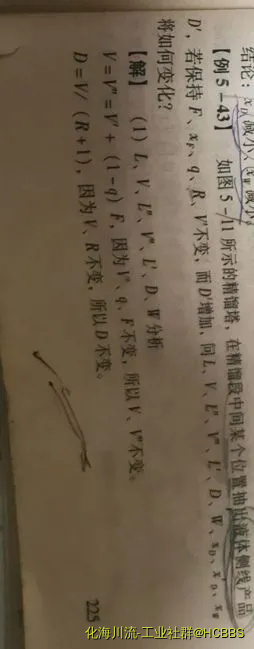 结论：x_D减小、x_W减小。
【例 5-43】 如图 5-11 所示的精馏塔，在精馏段中间某个位置抽出液体侧线产品
D′，若保持 F、x_F、q、R、V′不变，而 D′增加，问 L、V、L″、V″、L′、D、W、x_D、x′_D、x_W
将如何变化？
【解】 (1) L、V、L″、V″、L′、D、W 分析
V=V″=V′+(1-q)F，因为 V′、q、F 不变，所以 V、V″不变。
D=V/(R+1)，因为 V、R 不变，所以 D 不变。
225
化海川流-工业社群@HCBBS